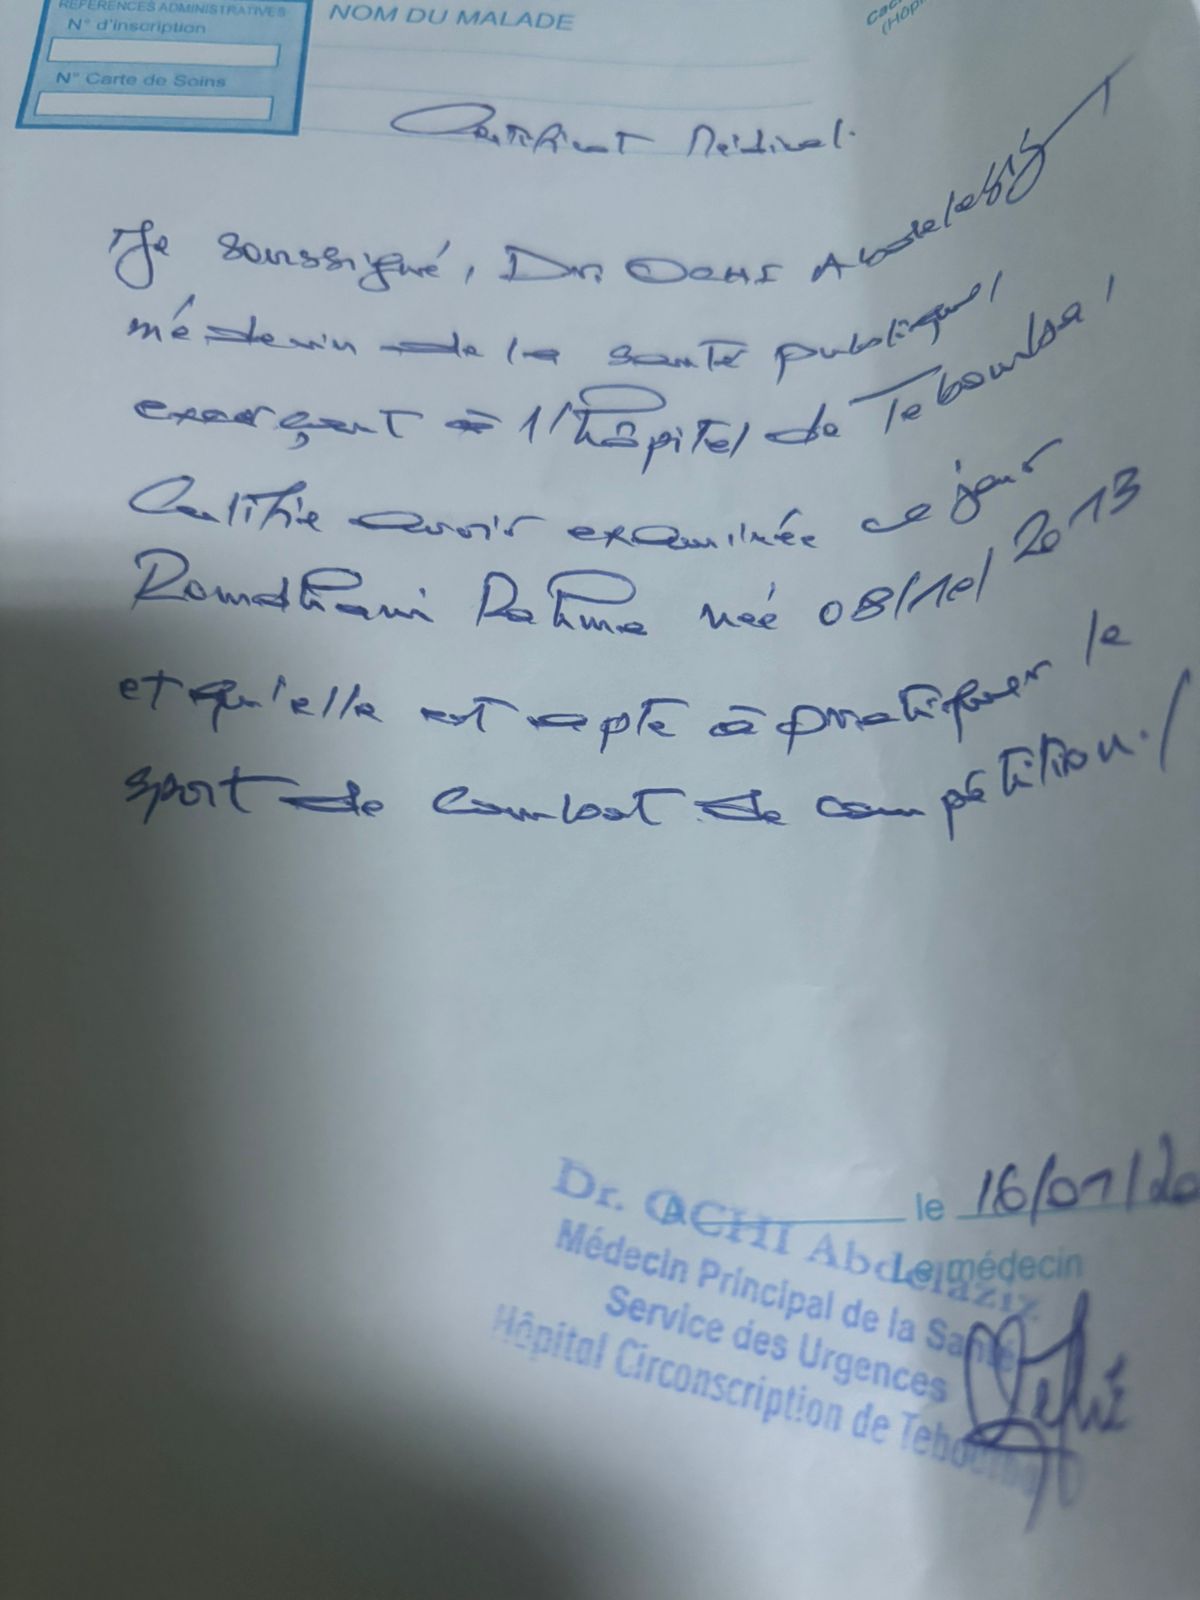 RÉFÉRENCES ADMINISTRATIVES
N° d'inscription
N° Carte de Soins
NOM DU MALADE
Cach
(Hôpi
Certificat Médical.
Je soussigné, Dr. OCHI Abdelaziz
médecin de la santé publique,
exerçant à l'hôpital de Tebourba,
Certifie avoir examinée ce jour
Romdhani Rahma née 08/10/2013
et qu'elle est apte à pratiquer le
sport de combat de compétition./
le 16/01/20
Le médecin
Dr. OCHI Abdelaziz
Médecin Principal de la Santé
Service des Urgences
Hôpital Circonscription de Tebourba